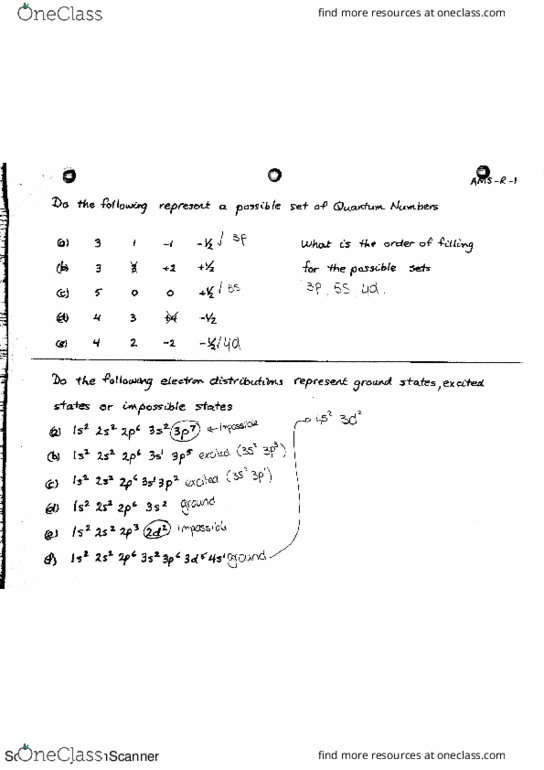 OneClass
find more resources at oneclass.com
AMS-R-1
Do the following represent a possible set of Quantum Numbers
(a) 3 1 -1 -½ √ 3p
What is the order of filling
(b) 3 +2 +½
for the possible sets
(c) 5 0 0 +½ √ 5s
3p, 5s, 4d.
(d) 4 3 -½
(e) 4 2 -2 -½ √ 4d
Do the following electron distributions represent ground states, excited
states or impossible states
4s² 3d²
(a) 1s² 2s² 2p⁶ 3s² 3p⁷ ← impossible
(b) 1s² 2s² 2p⁶ 3s¹ 3p⁵ excited (3s² 3p)
(c) 1s² 2s² 2p⁶ 3s¹ 3p² excited (3s² 3p¹)
(d) 1s² 2s² 2p⁶ 3s² ground
(e) 1s² 2s² 2p³ 2d² impossible
(f) 1s² 2s² 2p⁶ 3s² 3p⁶ 3d⁵ 4s¹ ground
OneClass
Scanner
find more resources at oneclass.com